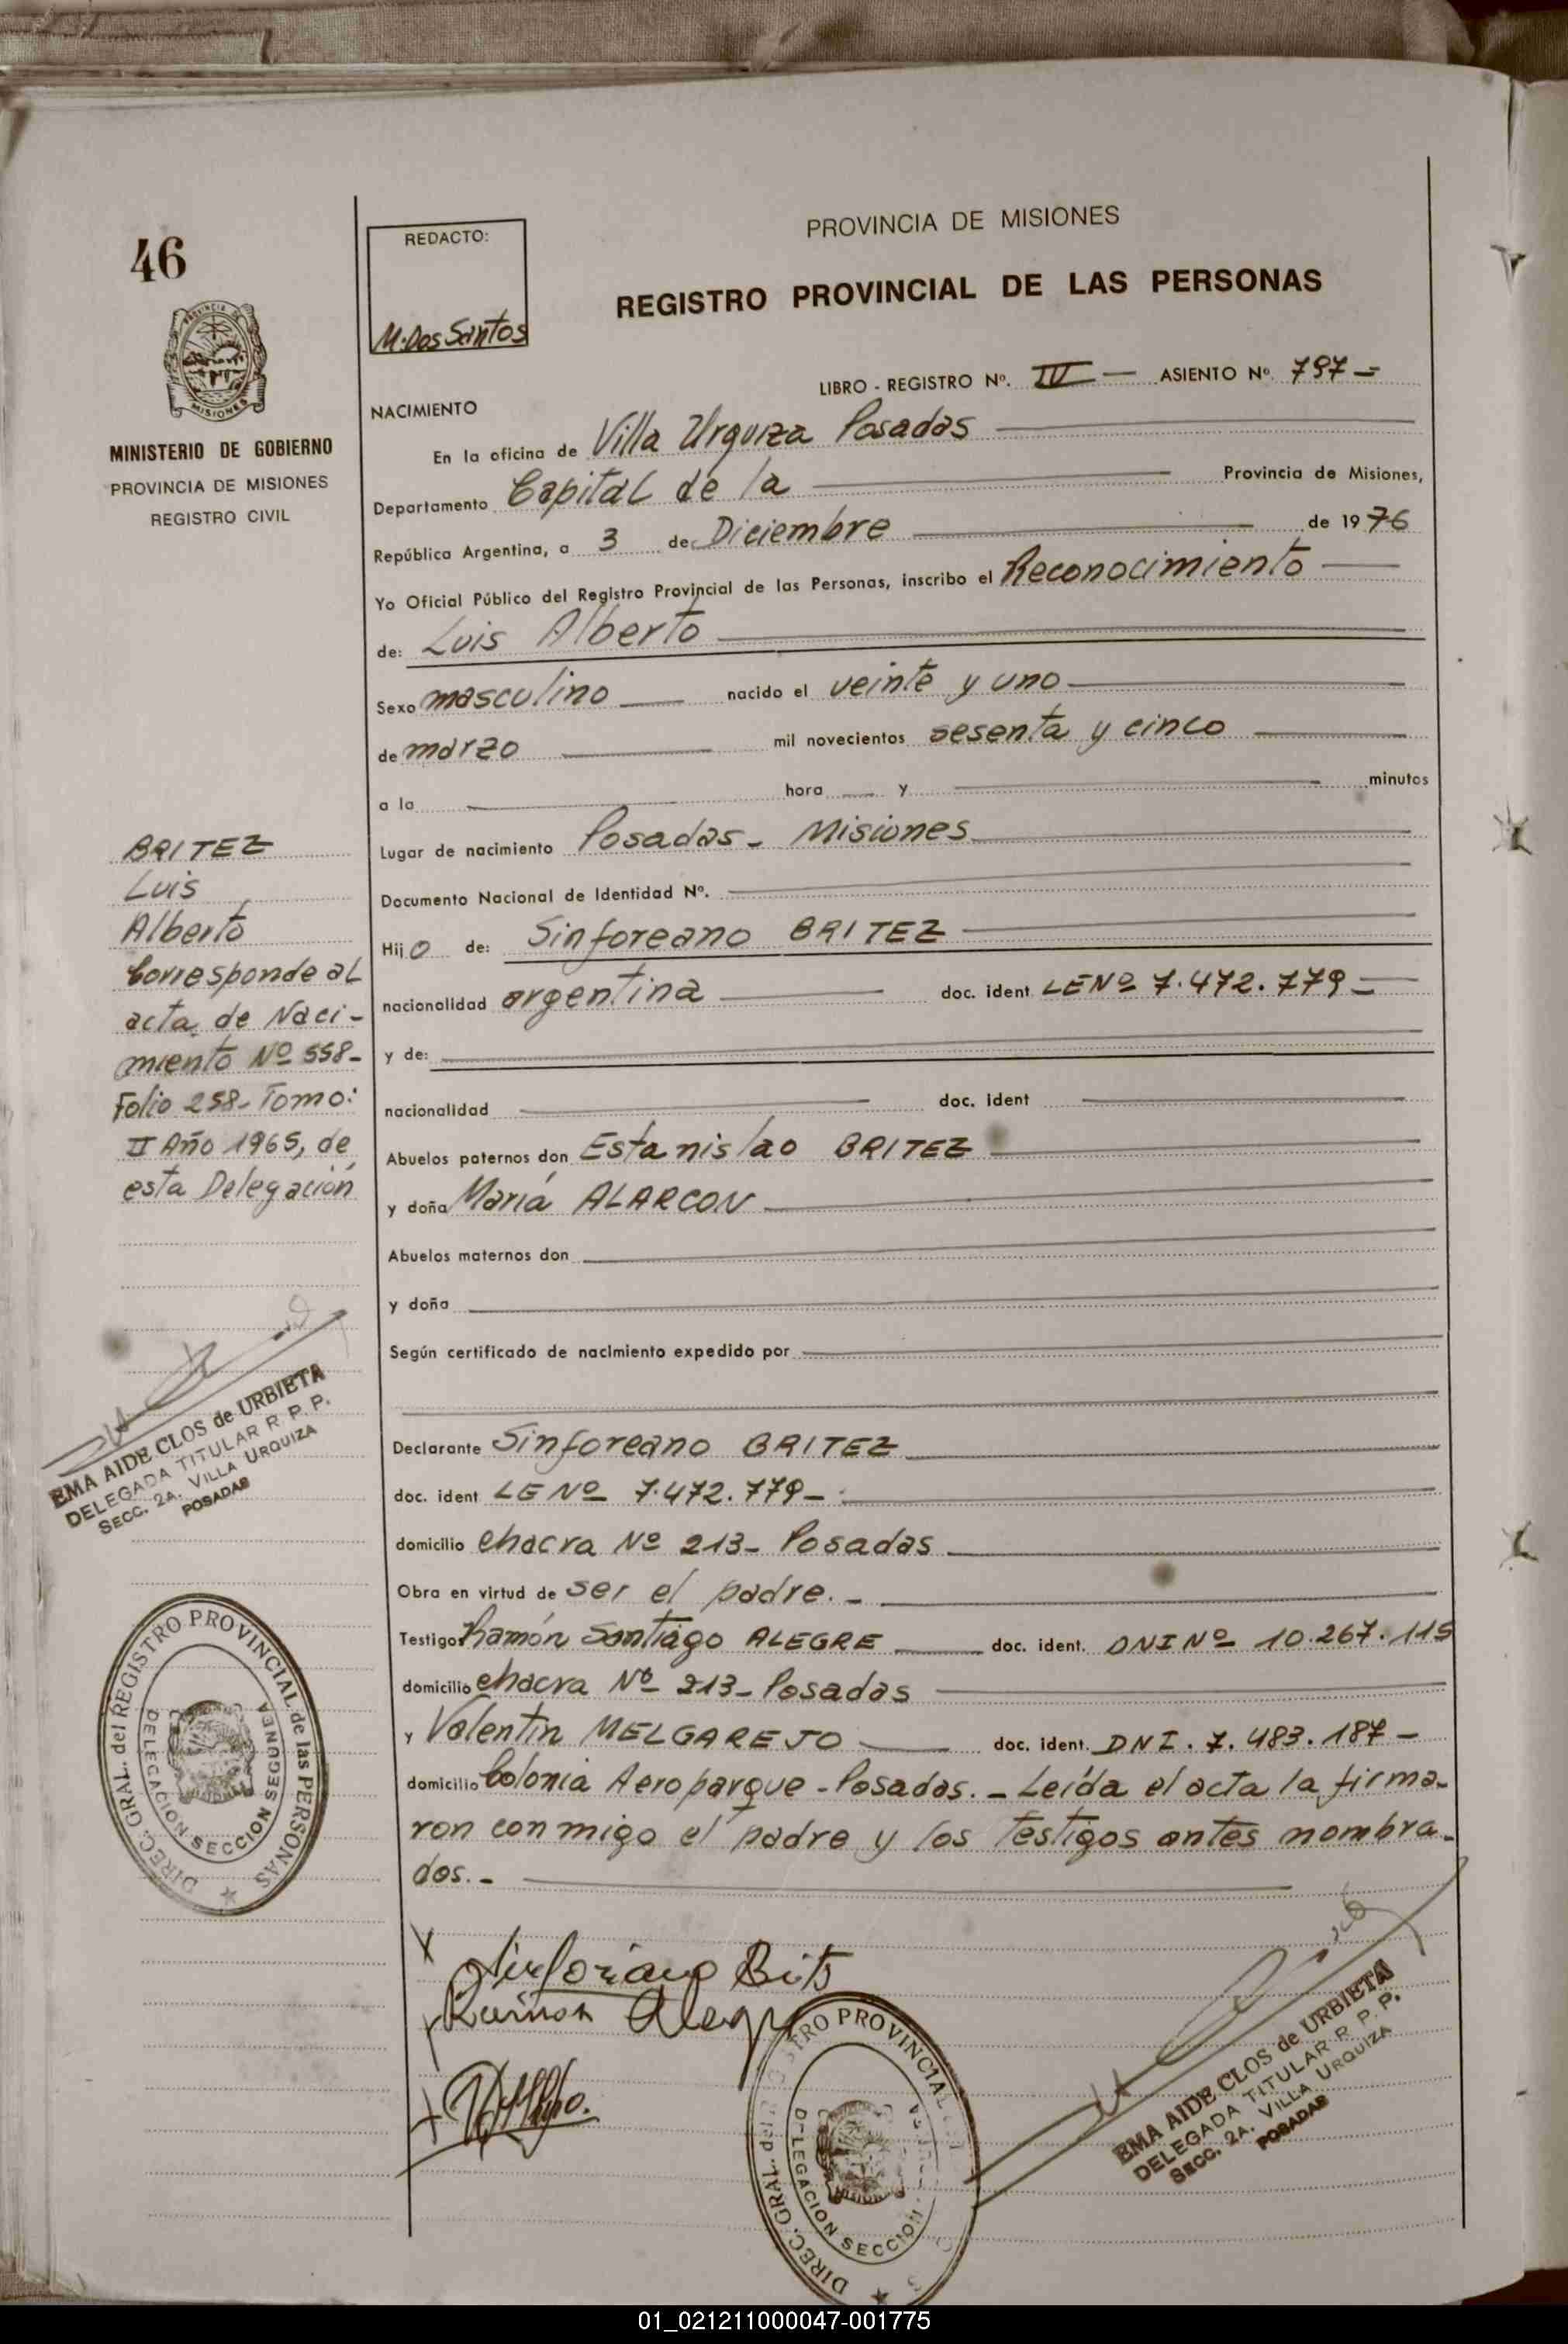 46
PROVINCIA DE MISIONES
MINISTERIO DE GOBIERNO
PROVINCIA DE MISIONES
REGISTRO CIVIL
REDACTO:
M. Dos Santos
PROVINCIA DE MISIONES
REGISTRO PROVINCIAL DE LAS PERSONAS
LIBRO - REGISTRO Nº. IV — ASIENTO Nº. 797 =
NACIMIENTO
En la oficina de Villa Urquiza Posadas
Departamento Capital de la Provincia de Misiones,
República Argentina, a 3 de Diciembre de 1976
Yo Oficial Público del Registro Provincial de las Personas, inscribo el Reconocimiento
de: Luis Alberto
Sexo masculino nacido el veinte y uno
de marzo mil novecientos sesenta y cinco
a la hora y minutos
Lugar de nacimiento Posadas - Misiones
Documento Nacional de Identidad Nº.
Hijo de: Sinforeano BRITEZ
nacionalidad argentina doc. ident LE Nº 7.472.779 =
y de:
nacionalidad doc. ident
Abuelos paternos don Estanislao BRITEZ
y doña María ALARCON
Abuelos maternos don
y doña
Según certificado de nacimiento expedido por
Declarante Sinforeano BRITEZ
doc. ident LE Nº 7.472.779 -
domicilio chacra Nº 213 - Posadas
Obra en virtud de ser el padre. -
Testigos Ramón Santiago ALEGRE doc. ident. DNI Nº 10.267.115
domicilio chacra Nº 213 - Posadas
y Valentín MELGAREJO doc. ident. DNI. 7.483.187 -
domicilio Colonia Aeroparque - Posadas. - Leída el acta la firma-
ron conmigo el padre y los testigos antes nombra-
dos. -
BRITEZ
Luis
Alberto
Corresponde al
acta de Naci-
miento Nº 558-
Folio 258- Tomo:
II Año 1965, de
esta Delegación
EMA AIDE CLOS de URBIETA
DELEGADA TITULAR R. P. P.
SECC. 2A. VILLA URQUIZA
POSADAS
DIREC. GRAL. del REGISTRO PROVINCIAL de las PERSONAS
DELEGACION SECCION SEGUNDA
X Sinforiano Brits
X Ramon Alegr
X
DIREC. GRAL. del REGISTRO PROVINCIAL
DELEGACION SECCION
EMA AIDE CLOS de URBIETA
DELEGADA TITULAR R. P. P.
SECC. 2A. VILLA URQUIZA
POSADAS
01_021211000047-001775